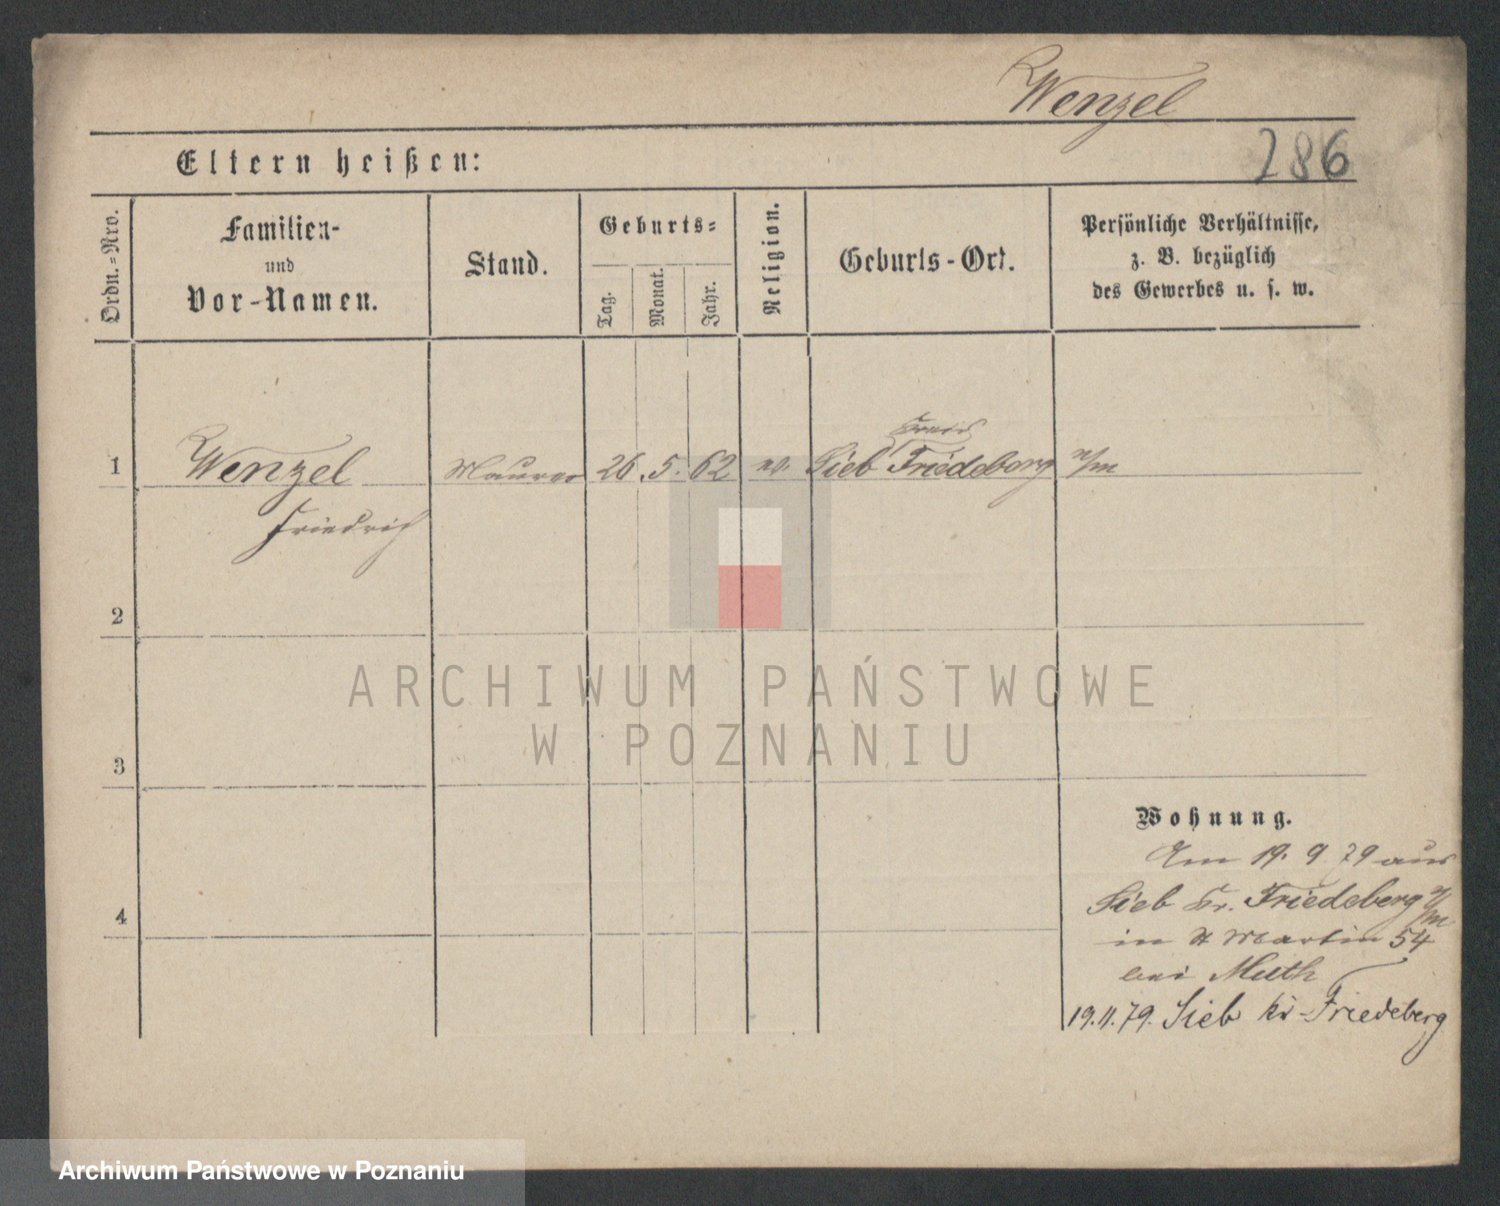 Wenzel
Eltern heißen:
286
Ordn.=Nro.
Familien-
und
Vor-Namen.
Stand.
Geburts=
Tag.
Monat.
Jahr.
Religion.
Geburts-Ort.
Persönliche Verhältnisse,
z. B. bezüglich
des Gewerbes u. s. w.
Kreis
1 Wenzel Maurer 26. 5. 62 ev. Lieb Friedeberg n/m
Friedrich
2
ARCHIWUM PAŃSTWOWE
W POZNANIU
3
Wohnung.
Am 19. 9. 79 aus
Lieb Kr. Friedeberg n/m
4
in St Martin 54
bei Muth
19.11.79. Lieb Kr Friedeberg
Archiwum Państwowe w Poznaniu